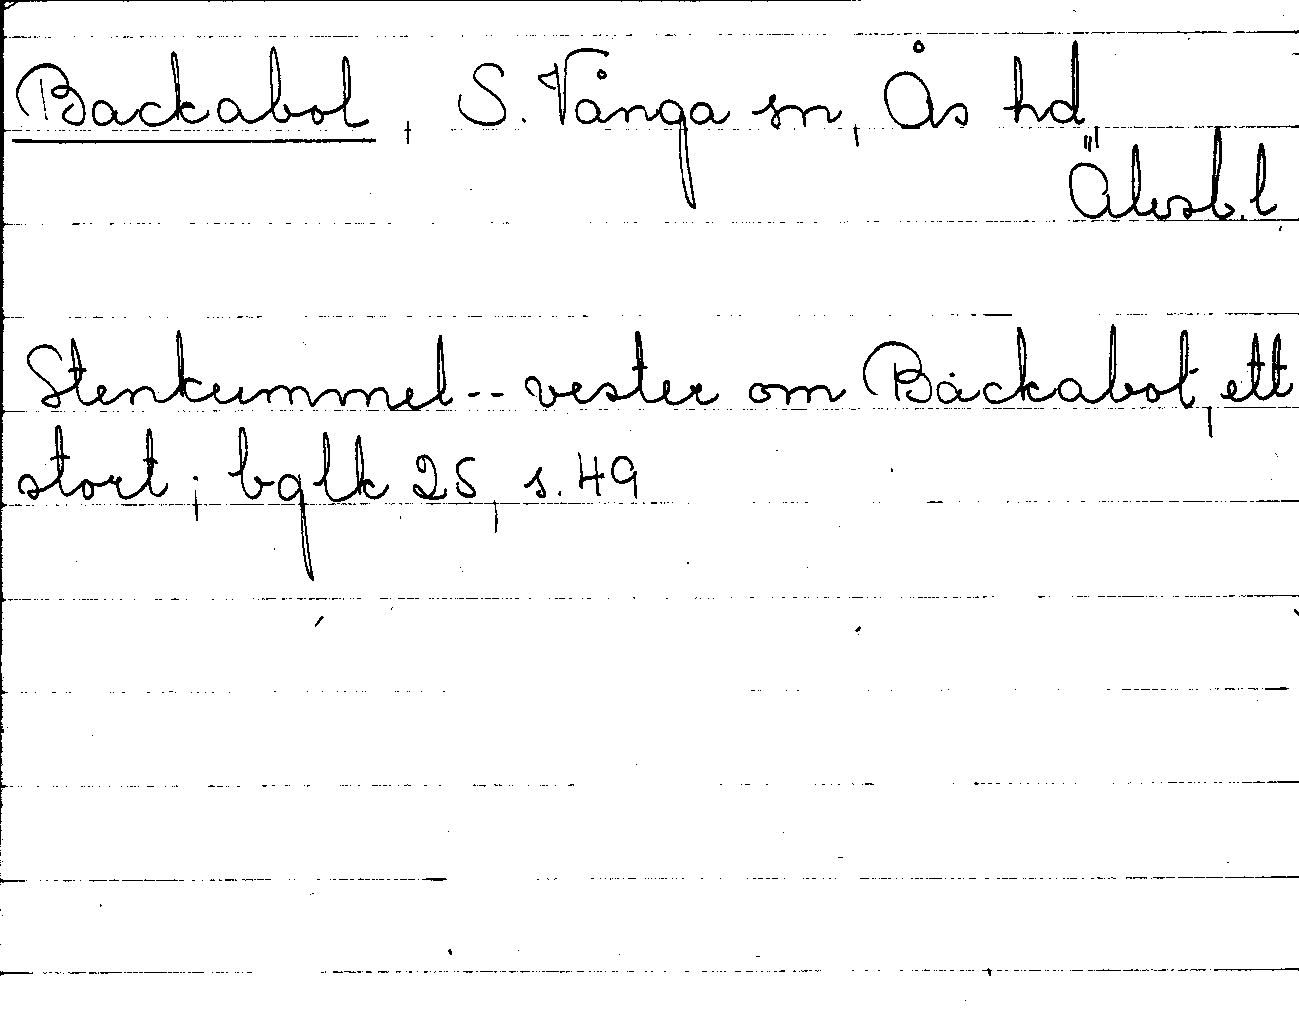 Backabol, S. Vånga sn, Ås hd,
Älvsb. l
Stenkummel -- vester om Backabol, ett
stort; bglk 25, s. 49